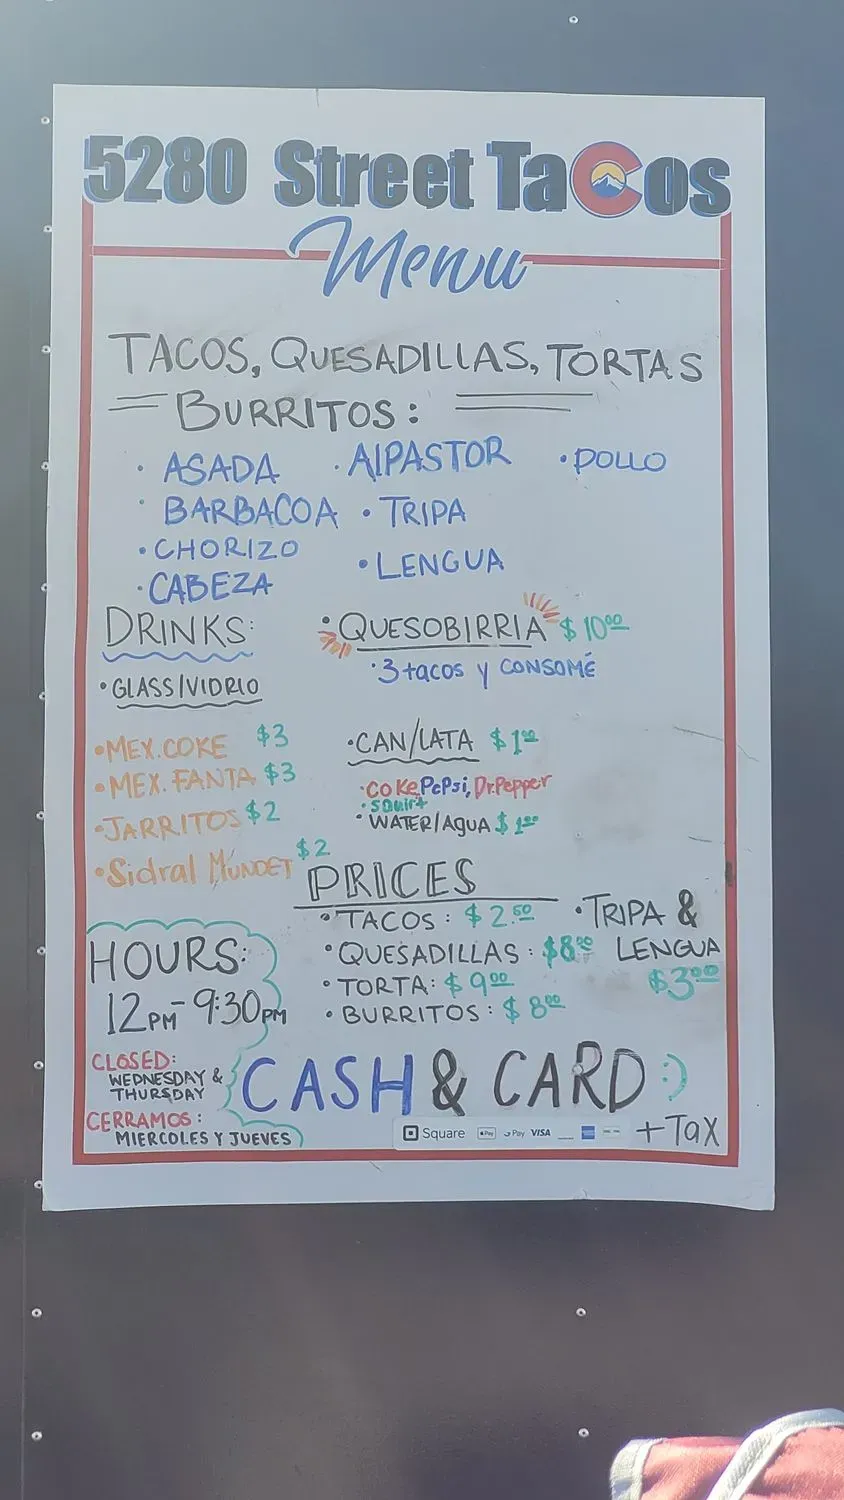 5280 Street Tacos
Menu
TACOS, QUESADILLAS, TORTAS
BURRITOS:
• ASADA • AlPASTOR • POLLO
• BARBACOA • TRIPA
• CHORIZO • LENGUA
• CABEZA
DRINKS:
• GLASS/VIDRIO
• MEX. COKE $3
• MEX. FANTA $3
• JARRITOS $2
• Sidral MUNDET $2
• QUESOBIRRIA $10.00
• 3 tacos y CONSOMÉ
• CAN/LATA $1.00
• Coke, PePsi, Dr. Pepper
• Squirt
• WATER/AGUA $1.00
PRICES
• TACOS: $2.50
• QUESADILLAS: $8.00
• TORTA: $9.00
• BURRITOS: $8.00
• TRIPA &
LENGUA
$3.00
HOURS:
12PM - 9:30PM
CLOSED:
WEDNESDAY &
THURSDAY
CERRAMOS:
MIERCOLES Y JUEVES
CASH & CARD :)
Square Pay Pay VISA
+Tax